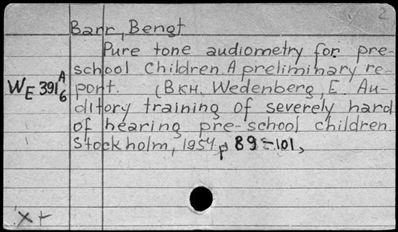 2
Barr, Bengt
Pure tone audiometry for pre-
school children. A preliminary re-
WE 391 A6 port. (BKH. Wedenberg, E. Au-
ditory training of severely hard
of hearing pre-school children.
Stockholm, 1954, p 89-101,
x+